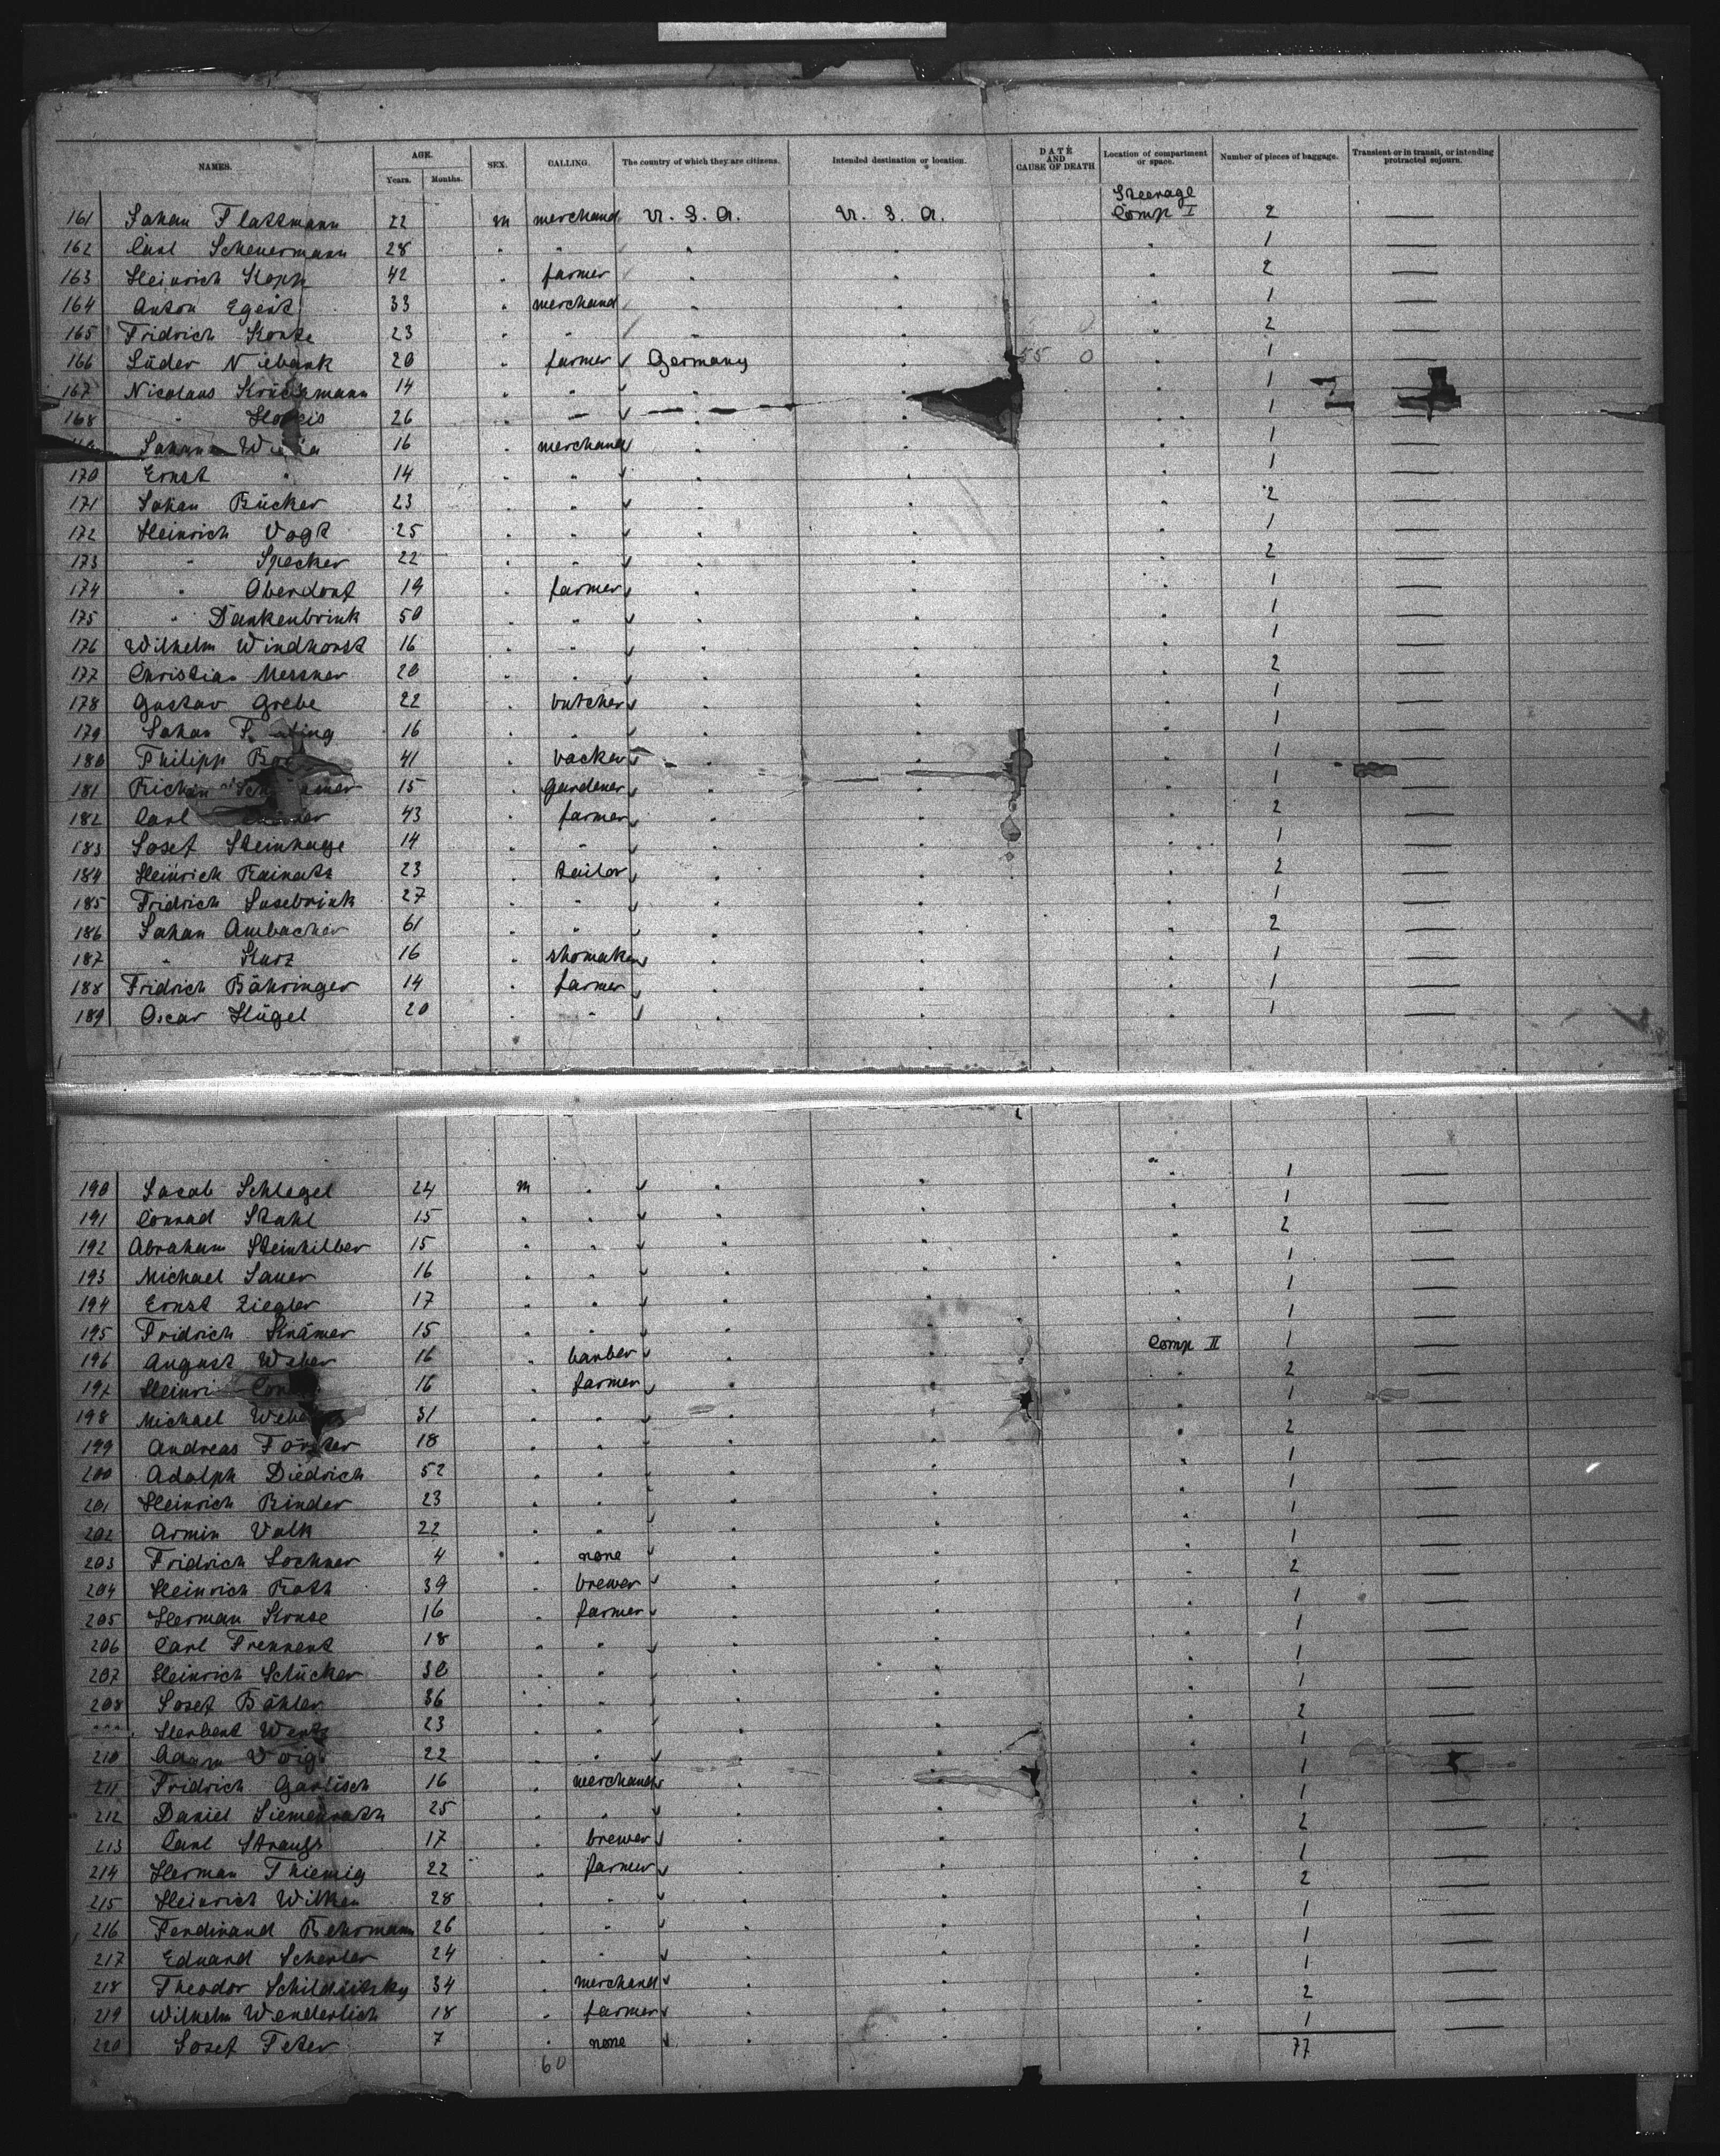 NAMES. AGE. Years. Months. SEX. CALLING. The country of which they are citizens. Intended destination or location. DATE AND CAUSE OF DEATH Location of compartment or space. Number of pieces of baggage. Transient or in transit, or intending protracted sojourn.
Steerage
161 Johan Flattmann 22 m merchand U. S. A. U. S. A. Comp I 2
162 Carl Scheuermann 28 " " " " " 1 —
163 Heinrich Kopp 42 " farmer " " " 2 —
164 Anton Egert 33 " merchand " " " 1 —
165 Fridrich Konze 23 " " " " " 2 —
166 Lüder Niebank 20 " farmer Germany " 55 0 " 1 —
167 Nicolaus 14 " " " " " 1
168 " 26 " " " " " 1
Johann 16 " merchand " " " 1 —
170 Ernst " 14 " " " " " 1 —
171 Johan Bücker 23 " " " " " 2 —
172 Heinrich Vogt 25 " " " " " 1 —
173 " Specker 22 " " " " " 2 —
174 " Oberdorf 19 " farmer " " " 1 —
175 " Dankenbrink 50 " " " " " 1 —
176 Wilhelm Windhorst 16 " " " " " 1 —
177 Christian Messner 20 " " " " " 2 —
178 Gustav Grebe 22 " butcher " " " 1 —
179 Johan 16 " " " " " 1 —
180 Philipp 41 " backer " " " 1
181 15 " gardener " " " 1 —
182 Carl 43 " farmer " " " 2 —
183 Josef Steinhage 14 " " " " " 1 —
184 Heinrich Rainatz 23 " tailor " " " 2 —
185 Fridrich Susebrink 27 " " " " " 1 —
186 Johan Ambacher 61 " " " " " 2 —
187 " Kurz 16 " shomaker " " " 1 —
188 Fridrich Bähringer 14 " farmer " " " 1 —
189 Oscar Hügel 20 " " " " " 1 —
190 Jacob Schlegel 24 m " " " " 1 —
191 Conrad Stahl 15 " " " " " 1 —
192 Abraham Steinhilber 15 " " " " " 2 —
193 Michael Sauer 16 " " " " " 1 —
194 Ernst Ziegler 17 " " " " " 1 —
195 Fridrich Krämer 15 " " " " 1 —
196 August Weber 16 " barber " " Comp II 1 —
197 16 " farmer " " " 2 —
198 Michael 31 " " " " " 1 —
199 Andreas Förster 18 " " " " " 2 —
200 Adolph Diedrich 52 " " " " " 1 —
201 Heinrich Binder 23 " " " " " 1 —
202 Armin Volk 22 " " " " " 1 —
203 Fridrich Lochner 4 " none " " " 1 —
204 Heinrich Roth 39 " brewer " " " 2 —
205 Herman Kruse 16 " farmer " " " 1 —
206 Carl Frennent 18 " " " " " 1 —
207 Heinrich Schücker 30 " " " " " 1 —
208 Josef Bähler 36 " " " " " 1 —
Herbert Wentz 23 " " " " " 2 —
210 Adam Voigt 22 " " " " " 1 —
211 Fridrich Garlisch 16 " merchand " " " 1 —
212 Daniel 25 " " " " " 1 —
213 Carl Strauss 17 " brewer " " " 2 —
214 Herman Thiemig 22 " farmer " " " 1 —
215 Heinrich Wilken 28 " " " " " 2 —
216 Ferdinand Behrmann 26 " " " " " 1 —
217 Eduard Scherler 24 " " " " " 1 —
218 Theodor 34 " merchand " " " 1 —
219 Wilhelm Wenderlich 18 " farmer " " " 2 —
220 Josef Peter 7 " none " " " 1 —
60 77